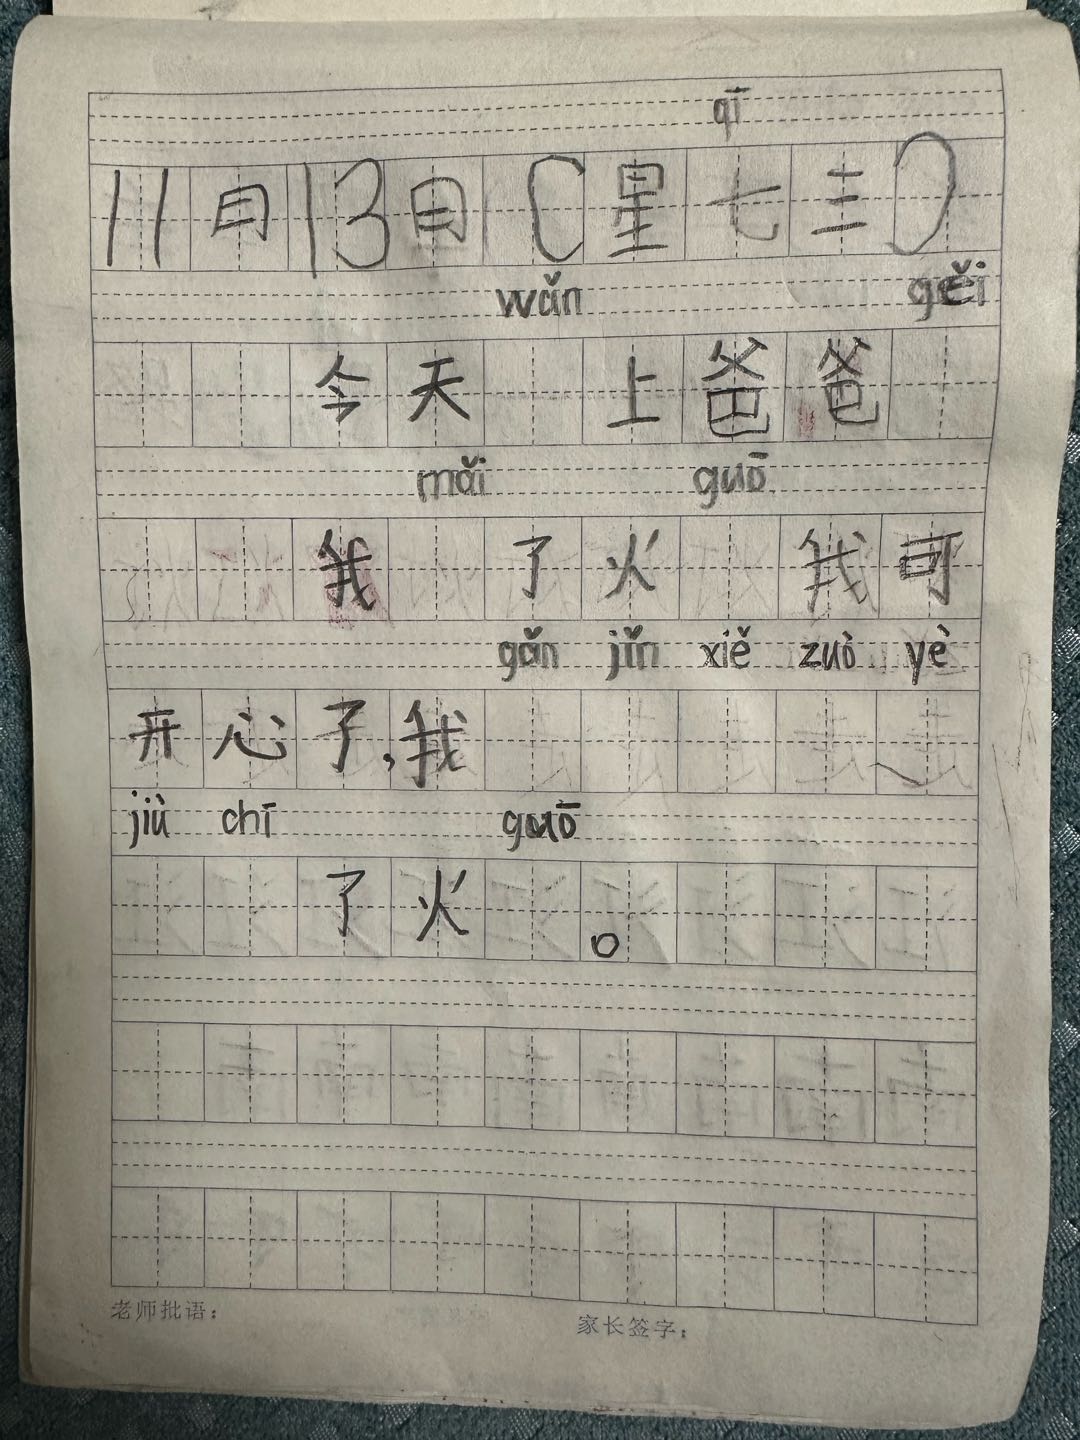 qī
11月13日(星七三)
wǎn gěi
今天上爸爸
mǎi guō
我了火我可
gǎn jǐn xiě zuò yè
开心了,我
jiù chī guō
了火。
老师批语:
家长签字: